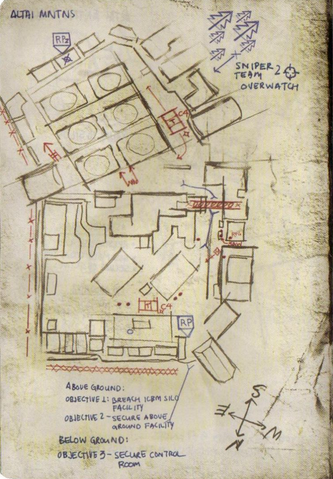 ALTAI MNTNS
RP2
SNIPER
TEAM 2
OVERWATCH
C4
C4
RP
ABOVE GROUND:
OBJECTIVE 1: BREACH ICBM SILO
FACILITY
OBJECTIVE 2- SECURE ABOVE
GROUND FACILITY
BELOW GROUND:
OBJECTIVE 3- SECURE CONTROL
ROOM
S
E
W
N